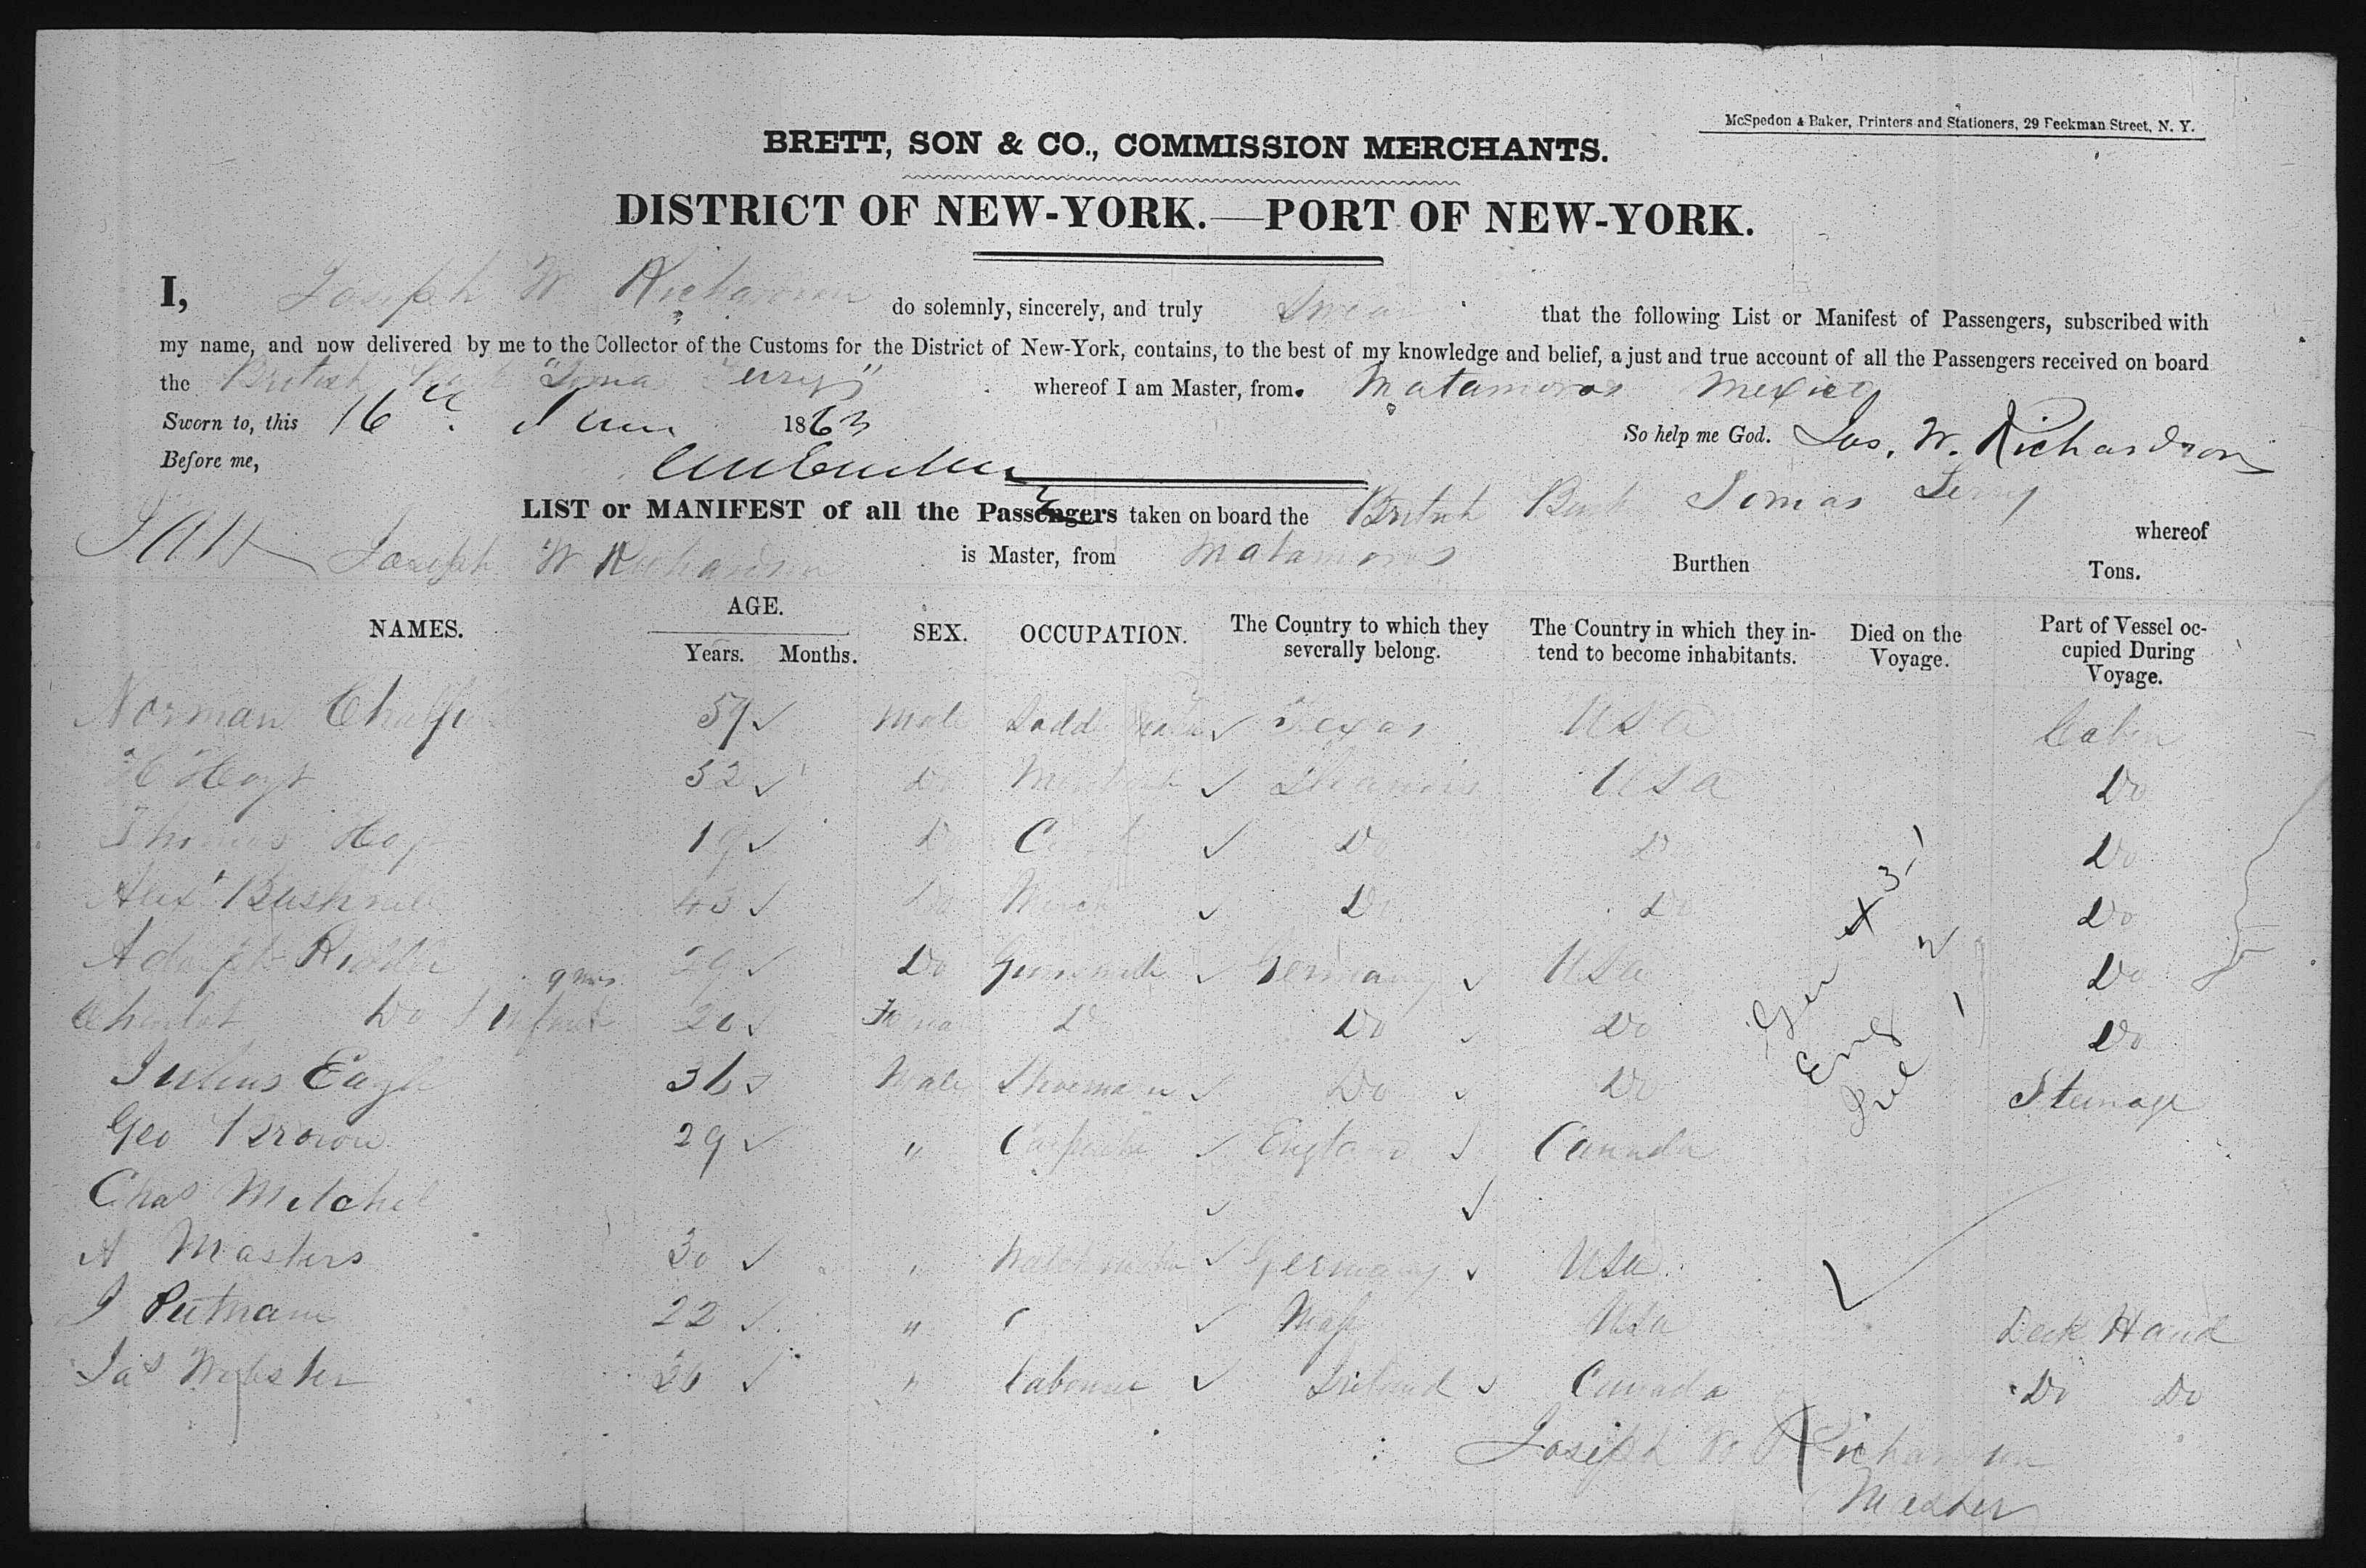 McSpedon & Baker, Printers and Stationers, 29 Beekman Street, N. Y.
BRETT, SON & CO., COMMISSION MERCHANTS.
DISTRICT OF NEW-YORK.—PORT OF NEW-YORK.
I, Joseph W Richardson do solemnly, sincerely, and truly Swear that the following List or Manifest of Passengers, subscribed with
my name, and now delivered by me to the Collector of the Customs for the District of New-York, contains, to the best of my knowledge and belief, a just and true account of all the Passengers received on board
the British Bark Terry" whereof I am Master, from Matamoros Mexico
Sworn to, this 16th June 1863 So help me God. Jos. W. Richardson
Before me,
LIST or MANIFEST of all the Passengers taken on board the British Bark Tomas Terry whereof
Joseph W Richardson is Master, from Matamoros Burthen Tons.
NAMES. AGE. Years. Months. SEX. OCCUPATION. The Country to which they severally belong. The Country in which they intend to become inhabitants. Died on the Voyage. Part of Vessel occupied During Voyage.
Norman 59 Male Texas USA Cabin
H Hoyt 52 Do USA Do
Thomas 19 Do Do Do Do
Alexr Bushnell 43 Do Merch Do Do Do
Adolph 9 mos 29 Do Gunsmith Germany USA Do
Do & Infant 26 Do Do Do Do
Julius Eagle 36 Male Shoemaker Do Do Steerage
Geo Brown 29 " Carpenter England Canada
Chas Mitchel
A Masters 30 " Watch maker Germany USA
J Putnam 22 " " Mass USA Deck Hand
Jas Webster 26 " Labourer Ireland Canada Do Do
Ger X 3-1
Eng 2
Ire 1
Joseph W Richardson
Master